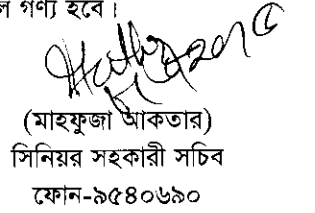 ল গণ্য হবে।
(মাহফুজা আকতার)
সিনিয়র সহকারী সচিব
ফোন-৯৫৪০৬৯০